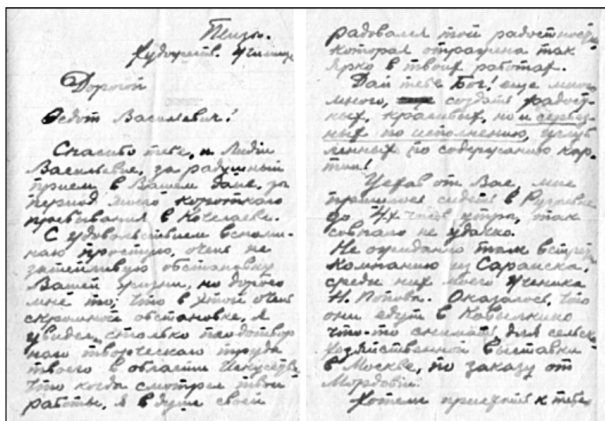 Пенза.
Художеств. Училище
Дорогой
Федот Васильевич!
Спасибо тебе, и Лидии
Васильевне, за радушный
прием, в Вашем доме, за
период моего короткого
пребывания в Кочелаеве.
С удовольствием вспоми-
наю простую, очень не
затейливую обстановку
Вашей жизни, но дорого
мне то, что в этой очень
скромной обстановке, я
увидел столько плодотвор
ного творческого труда
твоего в области Искусства,
что когда смотрел твои
работы, я в душе своей
радовался той радостност
которая отражена так
ярко в твоих работах.
Дай тебе Бог! еще много
много, создать радост-
ных, красивых, но и серьез-
ных по исполнению, углуб
ленных по содержанию кар-
тин!
Уехав от Вас, мне
пришлось сидеть в Рузаевке
до 4х часов утра, так
совпало не удачно.
Не ожиданно там встретил
компанию из Саранска,
среди них моего ученика
Н. Попова. Оказалось, что
они едут в Ковылкино
что-то снимать, для сельско
хозяйственной выставки
в Москве, по заказу от
Мордовии.
Хотели приехать к тебе